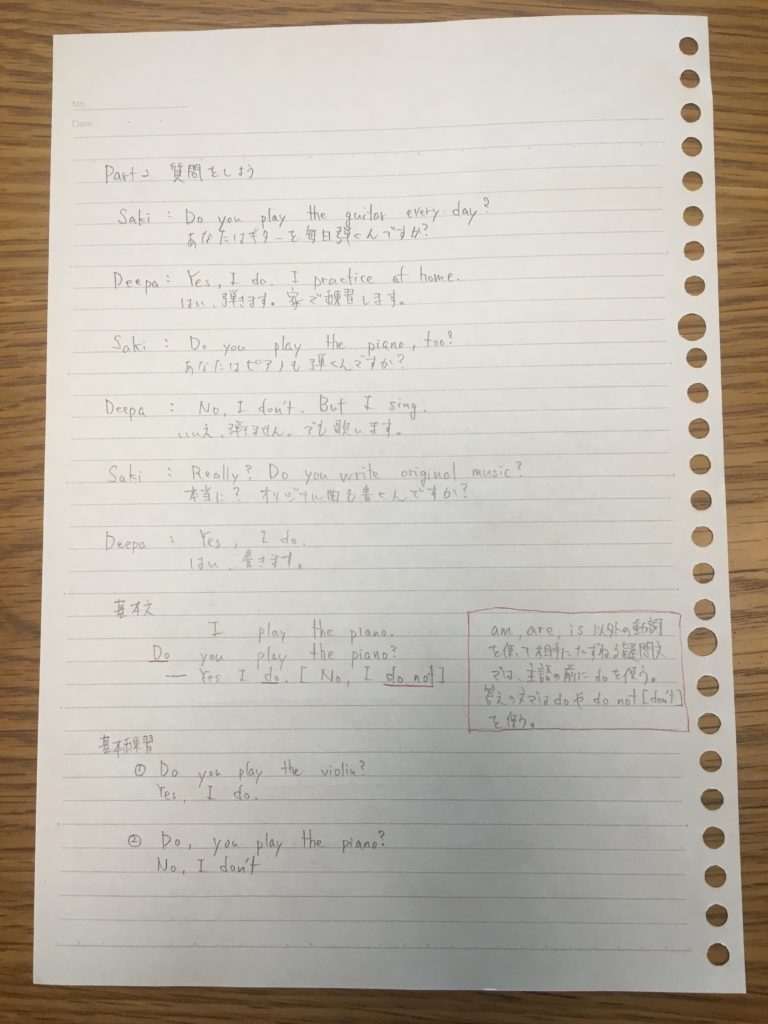 No.
Date
Part 2 質問をしよう
Saki : Do you play the guitar every day?
あなたはギターを毎日弾くんですか?
Deepa : Yes, I do. I practice at home.
はい、弾きます。家で練習します。
Saki : Do you play the piano, too?
あなたはピアノも弾くんですか?
Deepa : No, I don't. But I sing.
いいえ、弾きません。でも歌います。
Saki : Really? Do you write original music?
本当に? オリジナル曲も書くんですか?
Deepa : Yes, I do.
はい、書きます。
基本文
I play the piano.
Do you play the piano?
— Yes I do. [ No, I do not ]
am, are, is 以外の動詞
を使って相手にたずねる疑問文
では、主語の前に do を使う。
答えの文では do や do not [don't]
を使う。
基本練習
① Do you play the violin?
Yes, I do.
② Do, you play the piano?
No, I don't